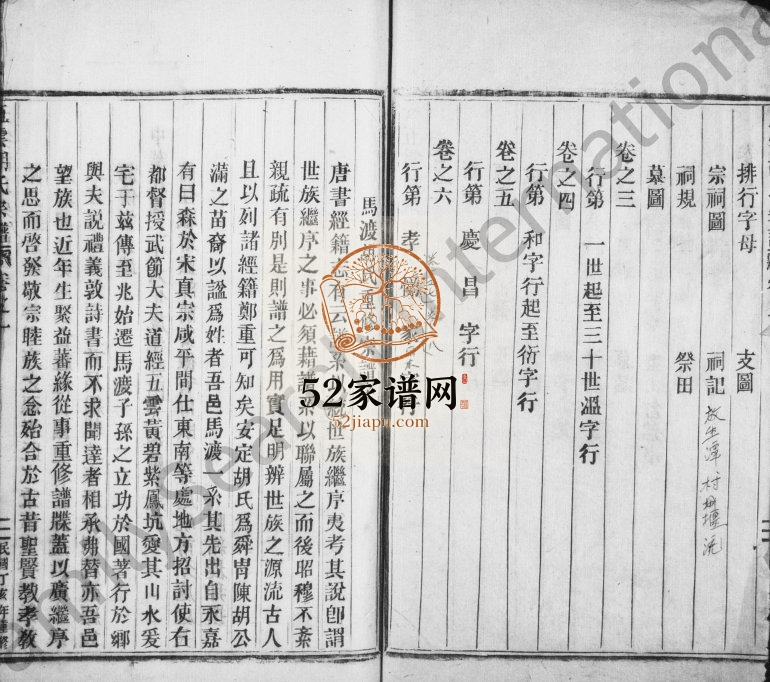 排行字母
支圖
宗祠圖
祠記
放生潭
祠規
祭田
墓圖
卷之三
行第
一世起至三十世溫字行
卷之四
行第
和字行起至衍字行
卷之五
行第
慶
昌
字行
卷之六
行第
孝
馬渡
唐書經籍
有云譜系
世族繼序夷考其說卽謂
世族繼序之事必須藉譜系以聯屬之而後昭穆不紊
親疏有別是則譜之爲用實足明辨世族之源流古人
且以列諸經籍鄭重可知矣安定胡氏爲舜冑陳胡公
滿之苗裔以諡爲姓者吾邑馬渡一系其先出自永嘉
有曰森於宋真宗咸平間仕東南等處地方招討使右
都督授武節大夫道經五雲黃碧紫鳳坑愛其山水爰
宅于茲傳至兆始遷馬渡子孫之立功於國著行於鄉
與夫說禮義敦詩書而不求聞達者相承弗替亦吾邑
望族也近年生聚益蕃緣從事重修譜牒蓋以廣繼序
之思而啓發敬宗睦族之念殆合於古昔聖賢教孝教
民國丁亥年重修
52家谱网
52jiapu.com
FamilySearch International